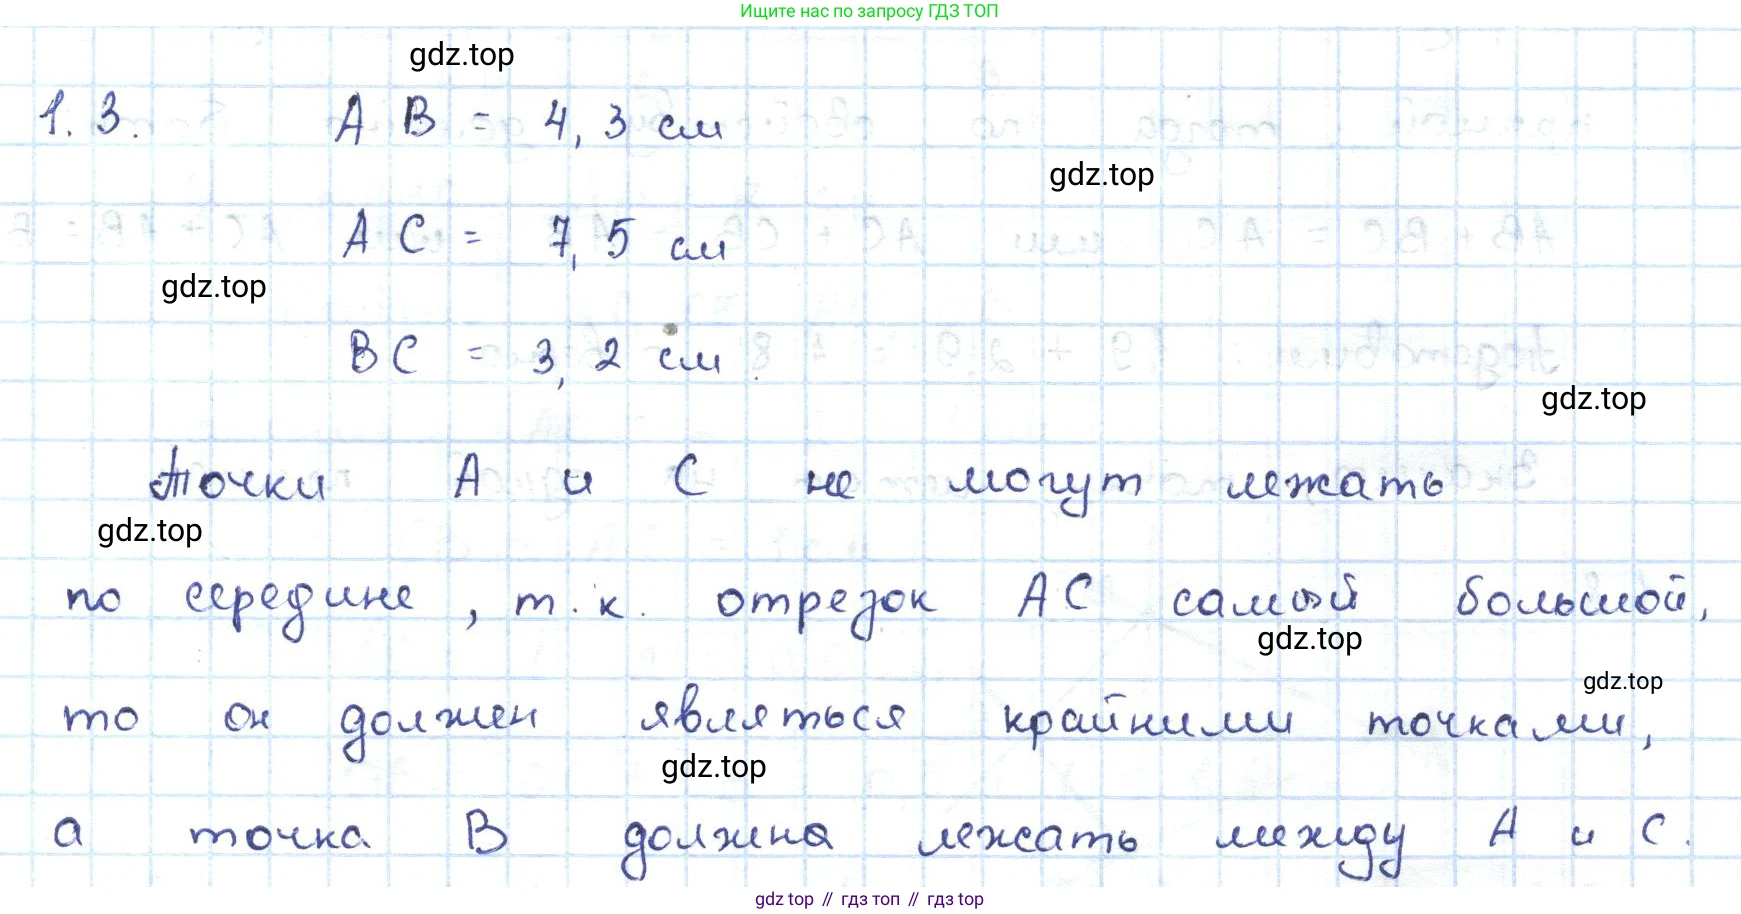 Ищите нас по запросу ГДЗ ТОП
gdz.top
1.3. AB = 4,3 см
gdz.top
AC = 7,5 см
gdz.top
BC = 3,2 см.
gdz.top
Точки A и C не могут лежать
gdz.top
по середине, т.к. отрезок AC самый большой,
gdz.top
gdz.top
то он должен являться крайними точками,
gdz.top
а точка B должна лежать между A и C.
gdz top // гдз топ // gdz top